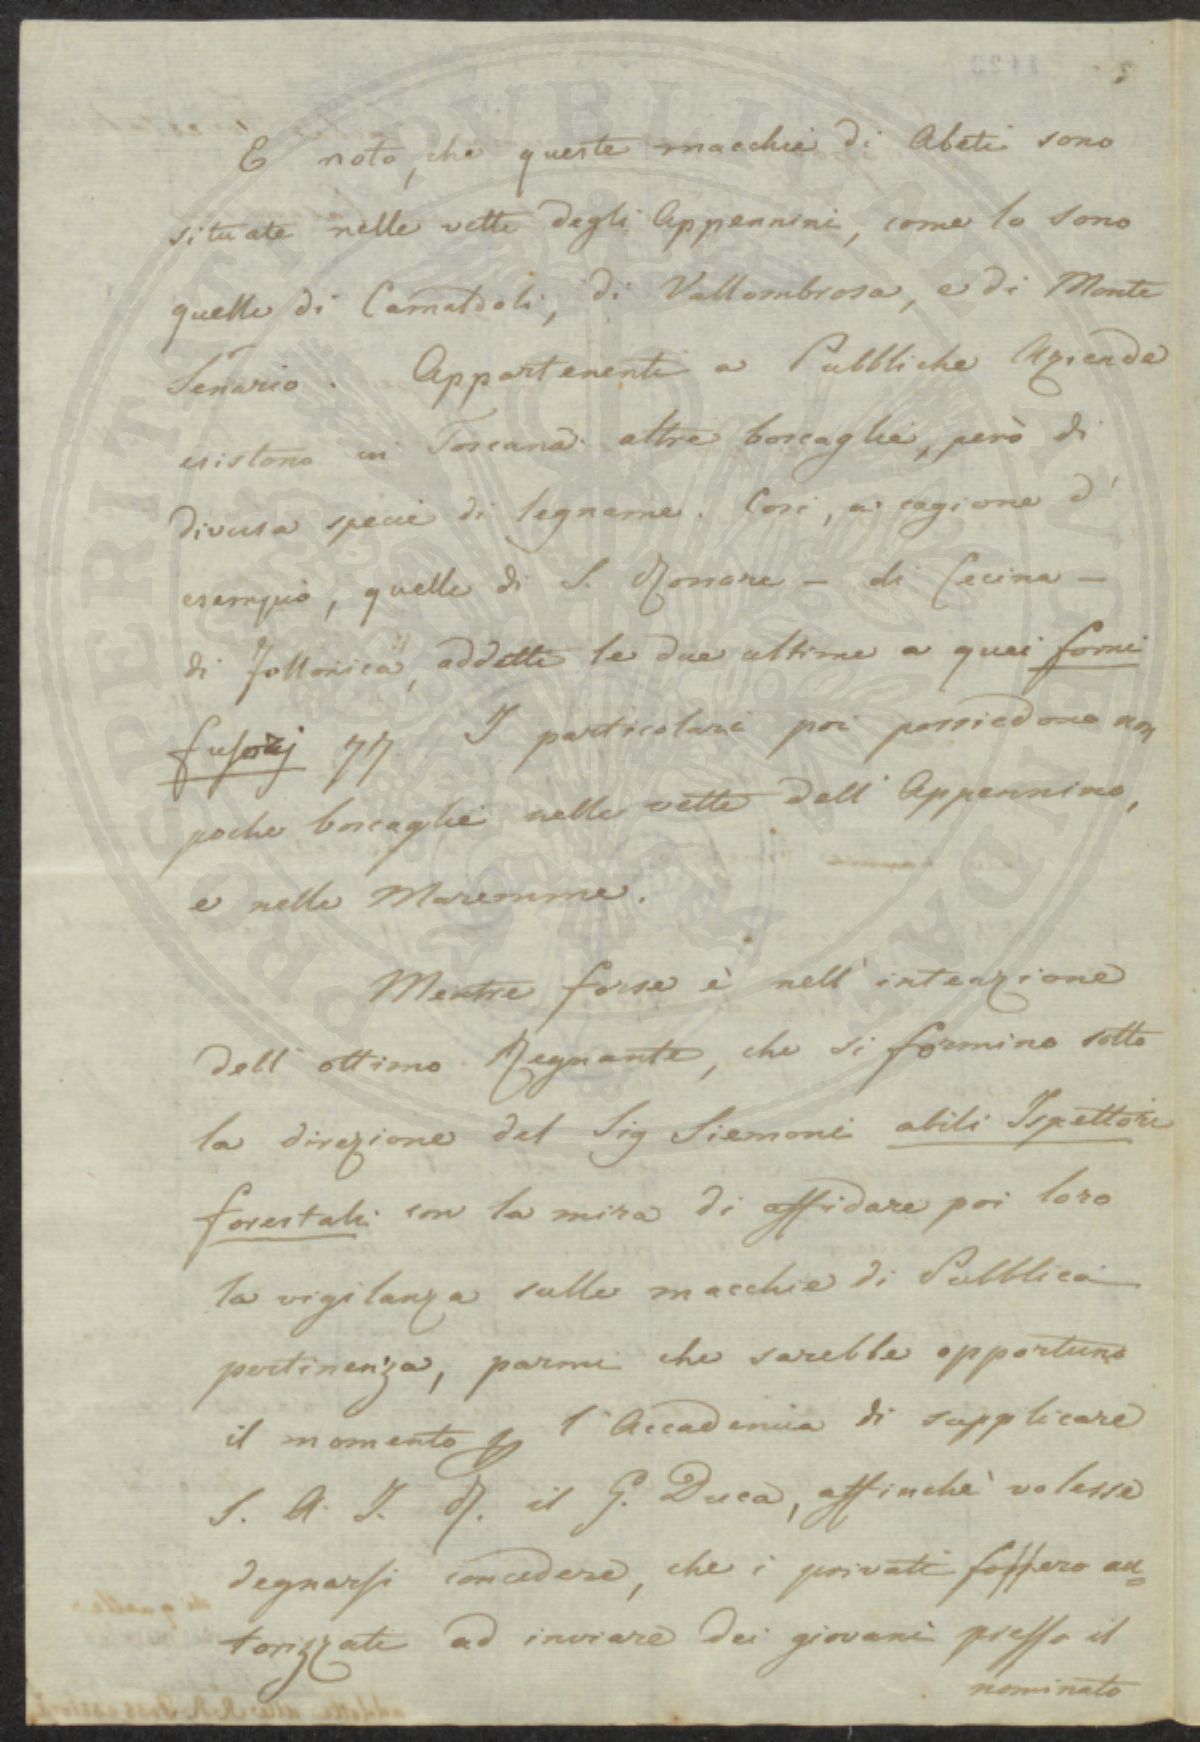 E noto, che queste macchie di Abeti sono
situate nelle vette degli Appennini, come lo sono
quelle di Camaldoli, di Vallombrosa, e di Monte
Senario. Appartenenti a Pubbliche Aziende
esistono in Toscana altre boscaglie, però di
diversa specie di legname. Così, a cagione d'
esempio, quelle di S. Rossore – di Cecina –
di Follonica, addette le due ultime a quei forni
fusorj
I particolari poi possiedono non
poche boscaglie nelle vette dell'Appennino,
e nelle Maremme.
Mentre forse è nell'intenzione
dell'ottimo Regnante, che si formino sotto
la direzione del Sig Siemoni abili Ispettori
forestali con la mira di affidare poi loro
la vigilanza sulle macchie di Pubblica
pertinenza, parmi che sarebbe opportuno
il momento l'Accademia di supplicare
S. A. I. R. il G. Duca, affinchè volesse
degnarsi concedere, che i privati fossero au=
torizzati ad inviare dei giovani presso il
nominato
PROSPERITATI PUBLICAE AUGENDAE